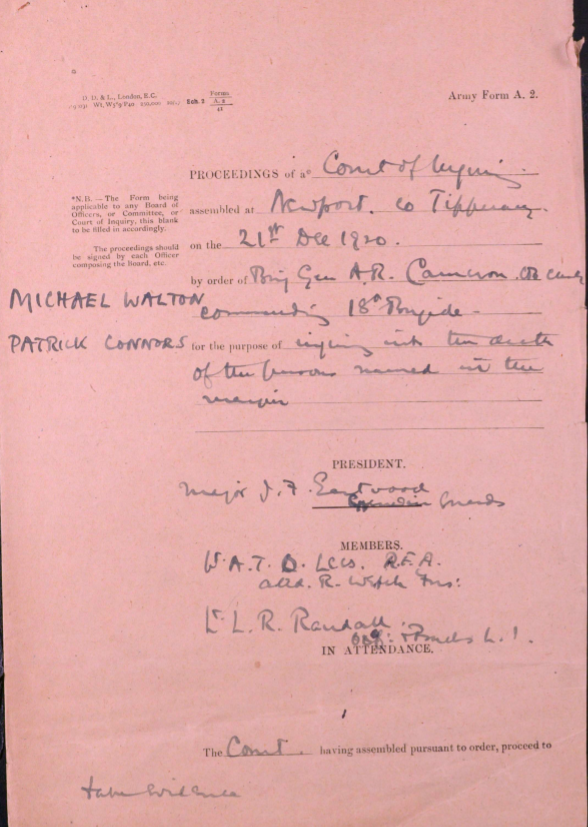 D. D. & L., London, E.C.
Forms
A. 2
Sch. 2
Army Form A. 2.
PROCEEDINGS of a* Court of Inquiry
*N.B.—The Form being
applicable to any Board of
Officers, or Committee, or
Court of Inquiry, this blank
to be filled in accordingly.
assembled at Newport. Co Tipperary.
The proceedings should
be signed by each Officer
composing the Board, etc.
on the 21st Dec 1920.
by order of Brig Gen A.R. Cameron.
MICHAEL WALTON
commanding 18th Brigade -
PATRICK CONNORS
for the purpose of inquiring into the death
of the persons named in the
margin
PRESIDENT.
Major J. F. Eastwood
Grenadier Guards
MEMBERS.
Lt. A. T. Lees. R.F.A.
attd. R. Welch Fus:
Lt. L. R. Randall.
L.I.
IN ATTENDANCE.
The Court. having assembled pursuant to order, proceed to
take evidence